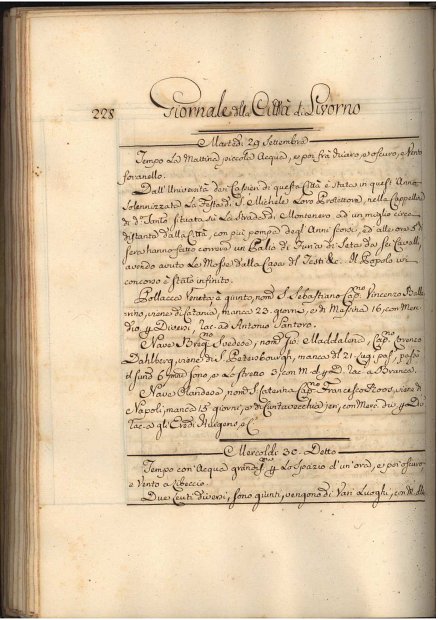 228 Giornale della Città di Livorno
Martedì 29 Settembre
Tempo La Mattina, piccola Acqua, e poi frà chiaro, e oscuro, e Vento
foranello.
Dall' Università dei di questa Città è Stata in quest' Anno
Solennizzata La Festa di S. Michele Loro Protettore, nella Cappella
di d.o Santo situata sù La Strada di Montenero ad un miglio circa
distante dalla Città, con più pompa degl' Anni scorsi, ed alle ore 5 di
sera hanno fatto correre un Palio di di Seta da sei Cavalli,
avendo avuto Le Mosse dalla Casa del Testi &c. Il Popolo ivi
concorso è Stato infinito.
Pollacca Veneta è giunta, nom.a S. Sebastiano Cap.no Vincenzo
viene di Catania, manca 23. giorni, e di Messina 16, con Mer
dio p Diversi, rac. ad Antonio Santoro.
Nave Svedese, nom.a Maddalena, Cap.no
Dahlberg, viene di S. Petersbourgh, manca dl 21 Lug. pas. passò
il Sund 6 sono, e Lo Stretto 3, con M. d. p D. rac. a
Nave Olandese nom.a S. Caterina Cap.no Francesco Roos, viene di
Napoli, manca 15 giorni, e da Civitavecchia jeri, con Merc. di p D.
rac. a gli Eredi Huigens, e C.
Mercoldì 30. Detto
Tempo con Acqua grand.e p Lo Spazio d'un'ora, e poi oscuro
e Vento a Libeccio.
Due Leuti diversi, sono giunti, vengono di Vari Luoghi, con M.